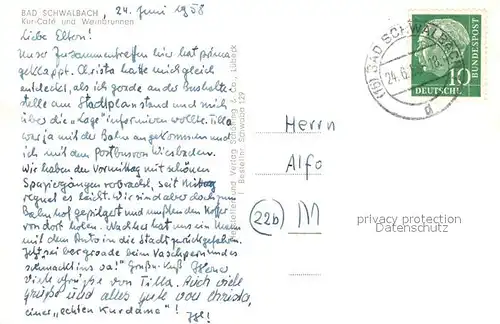 BAD SCHWALBACH, 24. Juni 1958
Kur-Café und Weinbrunnen
Liebe Eltern!
Unser Zusammentreffen hier hat prima
geklappt. Christa hatte mich gleich
entdeckt, als ich gerade an der Bushalte-
stelle am Stadtplan stand und mich
über die "Lage" informieren wollte. Tilla
war ja mit der Bahn angekommen und
ich mit dem Postbus von Wiesbaden.
Wir haben den Vormittag mit schönen
Spaziergängen verbracht, seit Mittag
regnet es leicht. Wir sind aber doch zum
Bahnhof gepilgert und mußten den Koffer
von dort holen. Nachher hat uns ein Mann
mit dem Auto in die Stadt zurückgefahren.
Jetzt sei bergrade beim Vaschpern und es
schmeckt uns ja! Gruß u. Kuß
Viele Grüße von Tilla. Auch viele
Grüße und alles gute von Christa,
einer "echten Kurdame"!
Hersteller und Verlag Schöning & Co., Lübeck
Bestellnr. Schwalb 129
(16) BAD SCHWALBACH
24.6.
d
10
DEUTSCHE BUNDESPOST
Herrn
Alfo
(22b) M
privacy protection
Datenschutz